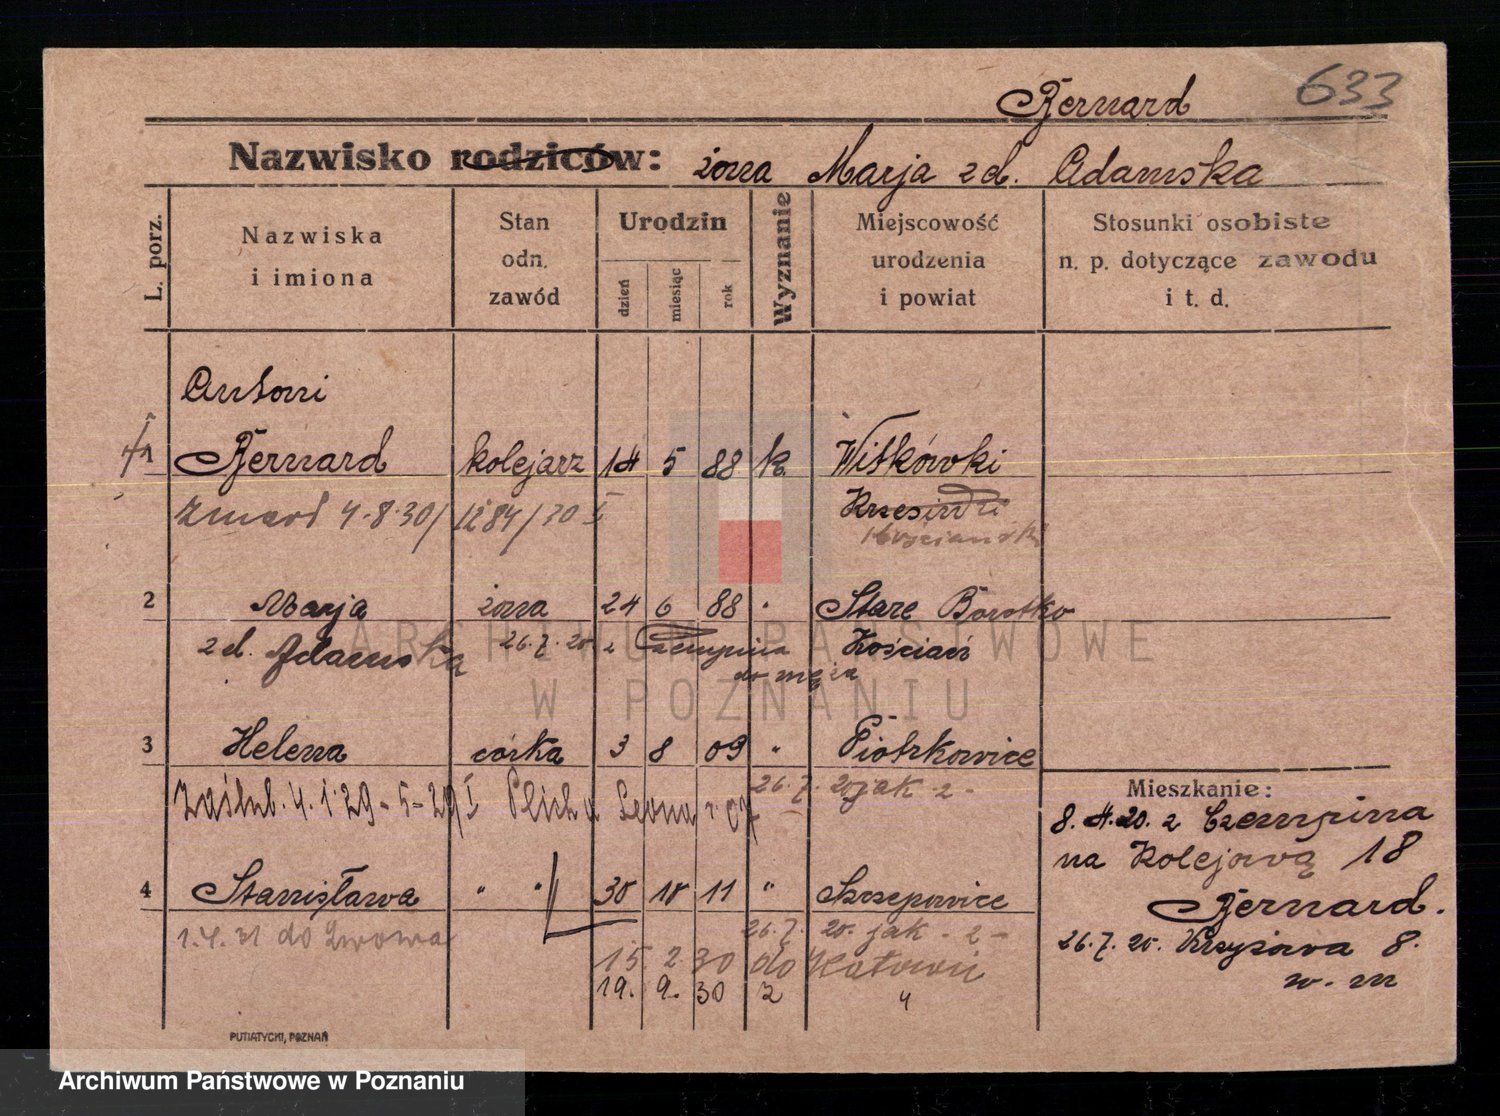 Bernard 633
Nazwisko rodziców: żona Marja z d. Adamska
L. porz.
Nazwiska
i imiona
Stan
odn.
zawód
Urodzin
dzień
miesiąc
rok
Wyznanie
Miejscowość
urodzenia
i powiat
Stosunki osobiste
n. p. dotyczące zawodu
i t. d.
Antoni
1 Bernard kolejarz 14 5 88 k Witkówki
zmarł 4.8.30/1284/30 I
Kościański
2 Marja żona 24 6 88 " Stare
z d. Adamska 26.7.20. z Czempinia Kościan
do męża
3 Helena córka 3 8 09 " Piotrkowice
26.7. 20 jak 2 -
Zaślub. 4.1.29 - 5 - 29/I Leona r. 07
4 Stanisława " " 30 10 11 " Szczepowice
1.4.31 do Lwowa 26.7. 20. jak - 2 -
15. 2. 30 do Katowic
19. 9. 30 z "
Mieszkanie:
8. 4. 20. z Czempinia
na Kolejową 18
Bernard.
26.7.20. 8.
w. m
PUTIATYCKI, POZNAŃ
ARCHIWUM PAŃSTWOWE
W POZNANIU
Archiwum Państwowe w Poznaniu